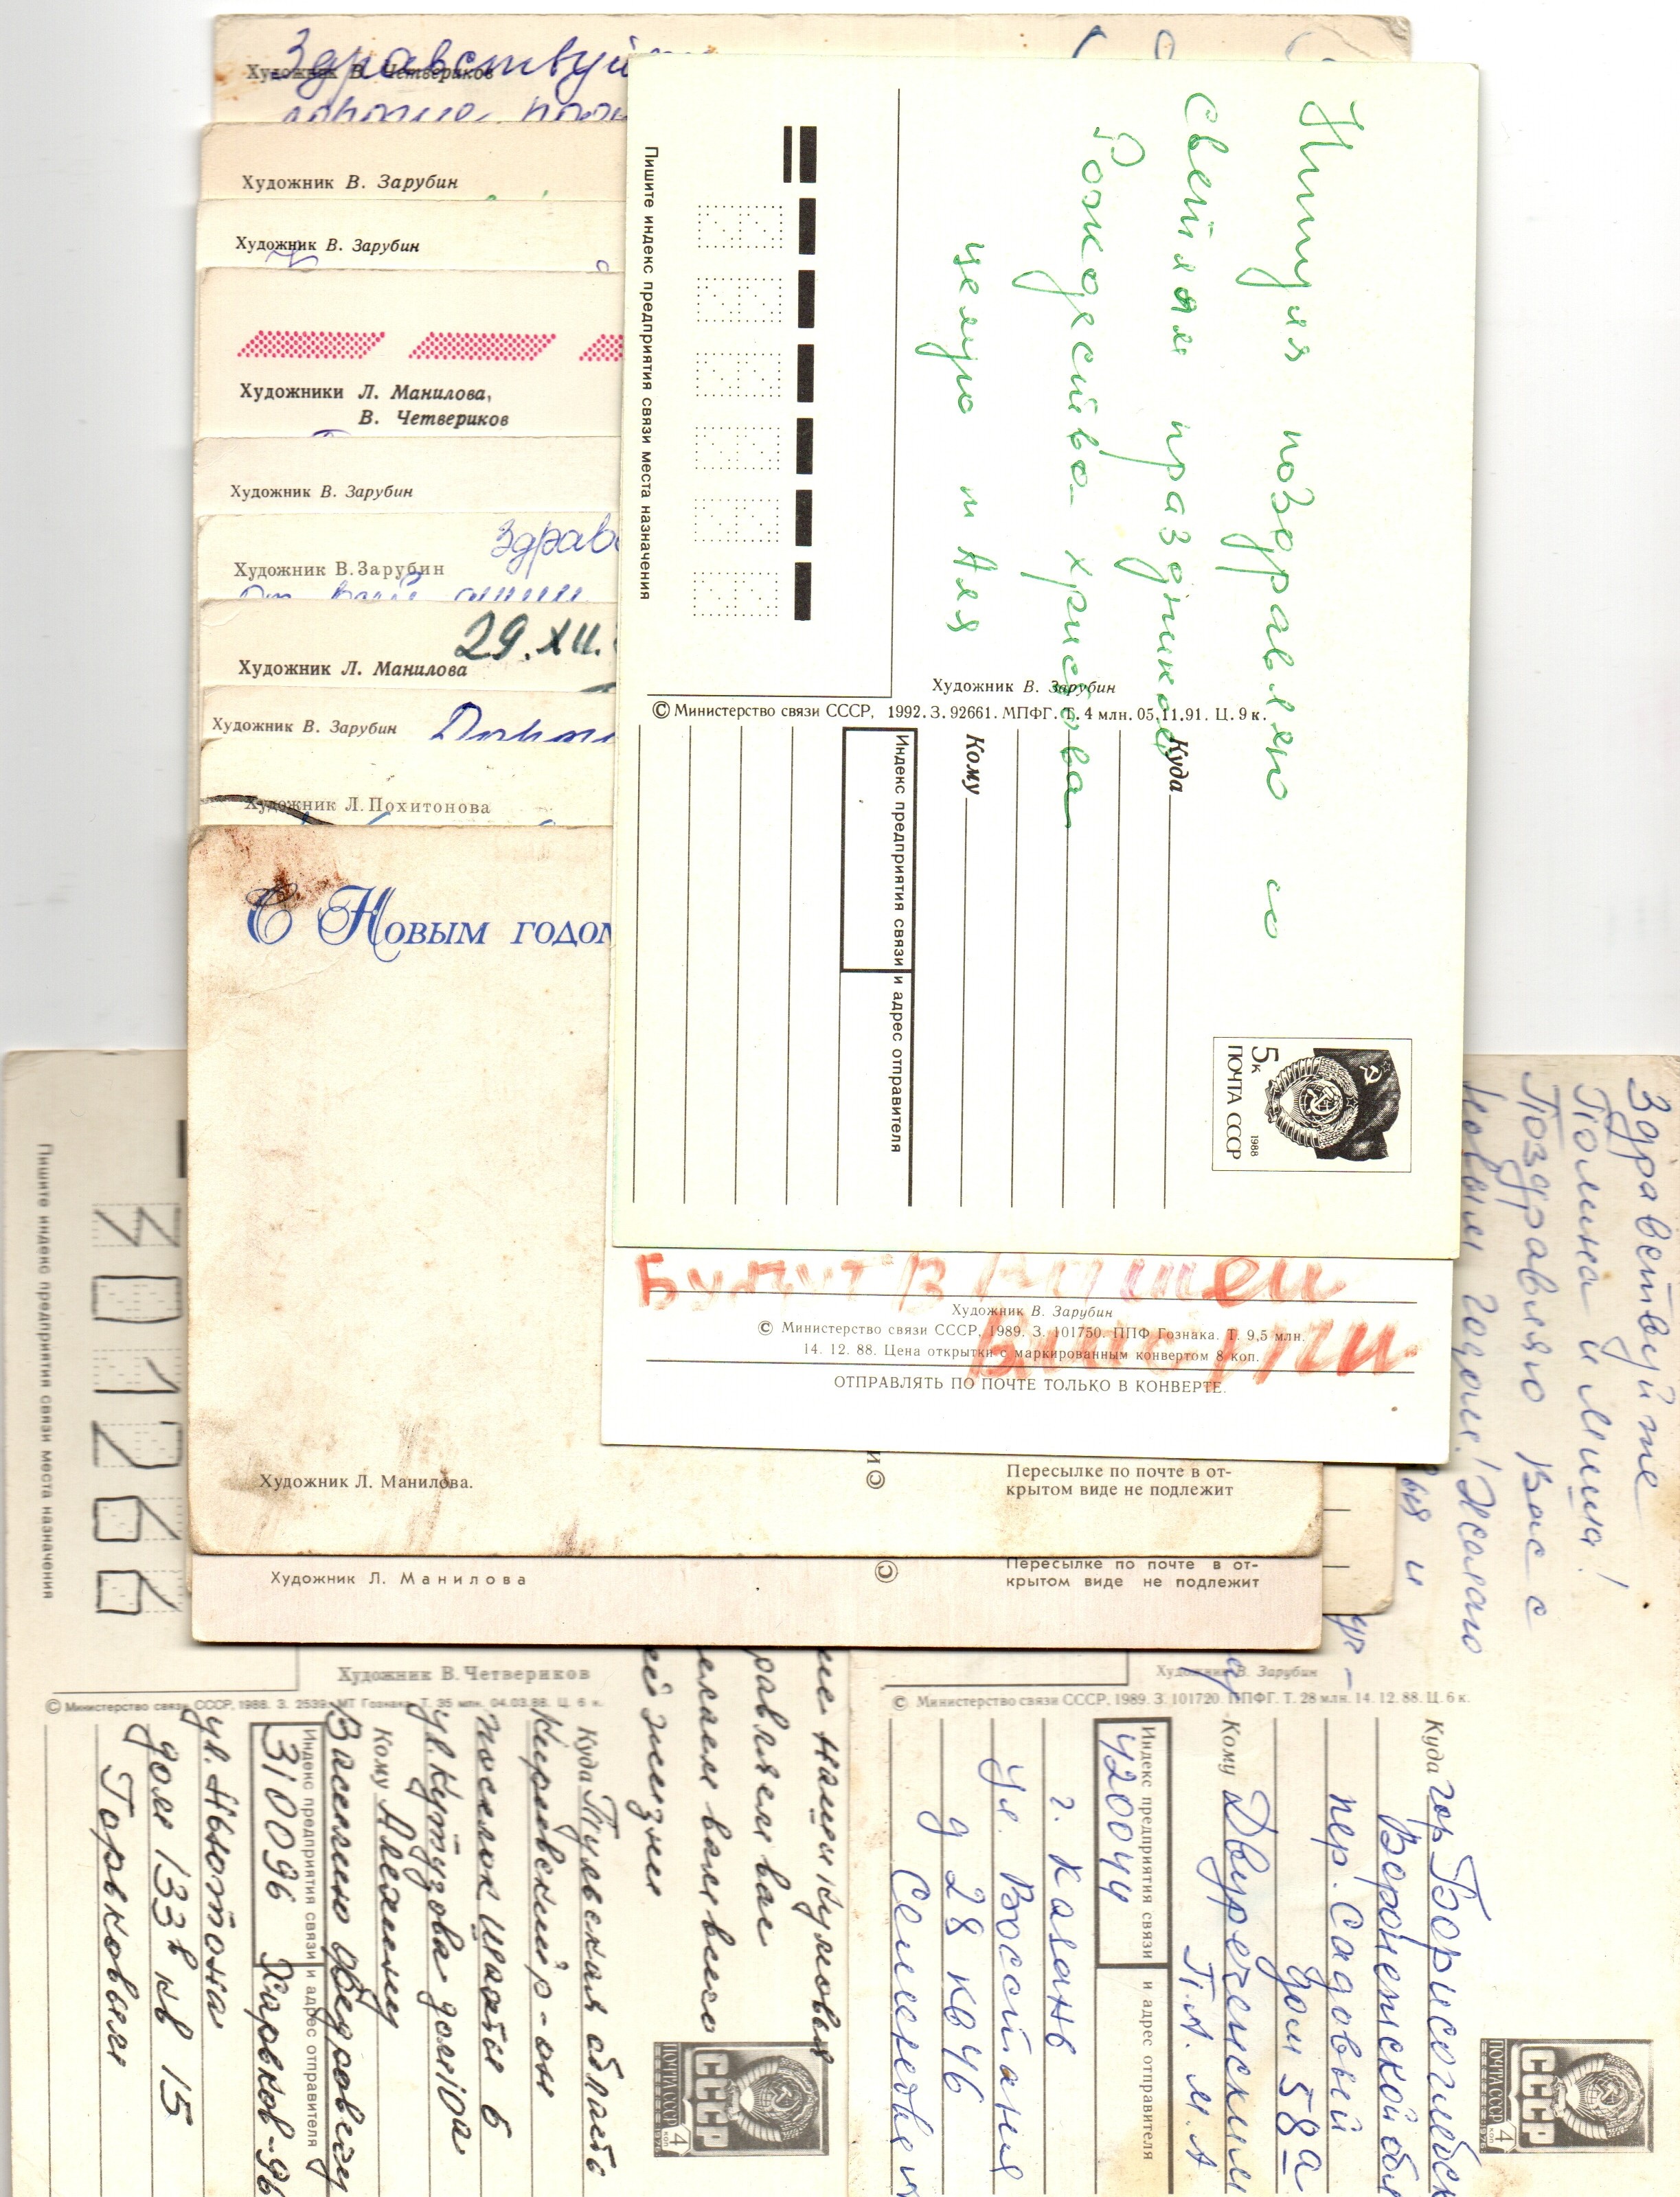 Здравствуй
Художник В. Четвериков
Художник В. Зарубин
Художник В. Зарубин
Художники Л. Манилова,
В. Четвериков
Художник В. Зарубин
Здравс
Художник В. Зарубин
29.XII.
Художник Л. Манилова
Художник В. Зарубин
Художник Л. Похитонова
С Новым годом
Художник Л. Манилова.
©
Пересылке по почте в от-
крытом виде не подлежит
Художник Л. Манилова
©
Пересылке по почте в от-
крытом виде не подлежит
поздравляю со
светлым праздником
Рождества христова
целую т Аля
Пишите индекс предприятия связи места назначения
Художник В. Зарубин
© Министерство связи СССР, 1992. З. 92661. МПФГ. Т. 4 млн. 05.11.91. Ц. 9 к.
Куда
Кому
Индекс предприятия связи и адрес отправителя
5к
ПОЧТА СССР
1988
Будут в
Художник В. Зарубин
© Министерство связи СССР, 1989. З. 101750. ППФ Гознака. Т. 9,5 млн.
14. 12. 88. Цена открытки с маркированным конвертом 8 коп.
ОТПРАВЛЯТЬ ПО ПОЧТЕ ТОЛЬКО В КОНВЕРТЕ.
Здравствуйте
Полина и Миша!
Поздравляю Вас с
Новым годом! Желаю
Художник В. Зарубин
© Министерство связи СССР, 1989. З. 101720. ППФГ. Т. 28 млн. 14. 12. 88. Ц. 6 к.
Куда гор Борисоглебск
Воронежской обл
пер. Садовый
дом 58а
Кому Двуреченским
П. А. М. А.
Индекс предприятия связи и адрес отправителя
420044
г. Казань
ул. Восстания
д 28 кв 46
ПОЧТА СССР
СССР
4
КОП
Пишите индекс предприятия связи места назначения
301266
наши кумовья
равляем вас
елаем вам всего
ей жизни
Художник В. Четвериков
© Министерство связи СССР, 1988. З. 2539. МТ Гознака. Т. 35 млн. 04.03.88. Ц. 6 к.
Куда Тульская область
Киреевский р-он
поселок Шварц
ул. Кутузова дом 10а
Кому
Индекс предприятия связи и адрес отправителя
310096 Харьков-96
ул. Ньютона
дом 133в кв 15
Горьковым
ПОЧТА СССР
СССР
4
КОП